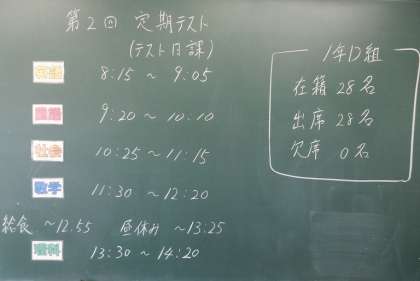 第2回 定期テスト
(テスト日課)
英語 8:15 ～ 9:05
国語 9:20 ～ 10:10
社会 10:25 ～ 11:15
数学 11:30 ～ 12:20
給食 ～12.55 昼休み ～13:25
理科 13:30 ～ 14:20
1年D組
在籍 28名
出席 28名
欠席 0名